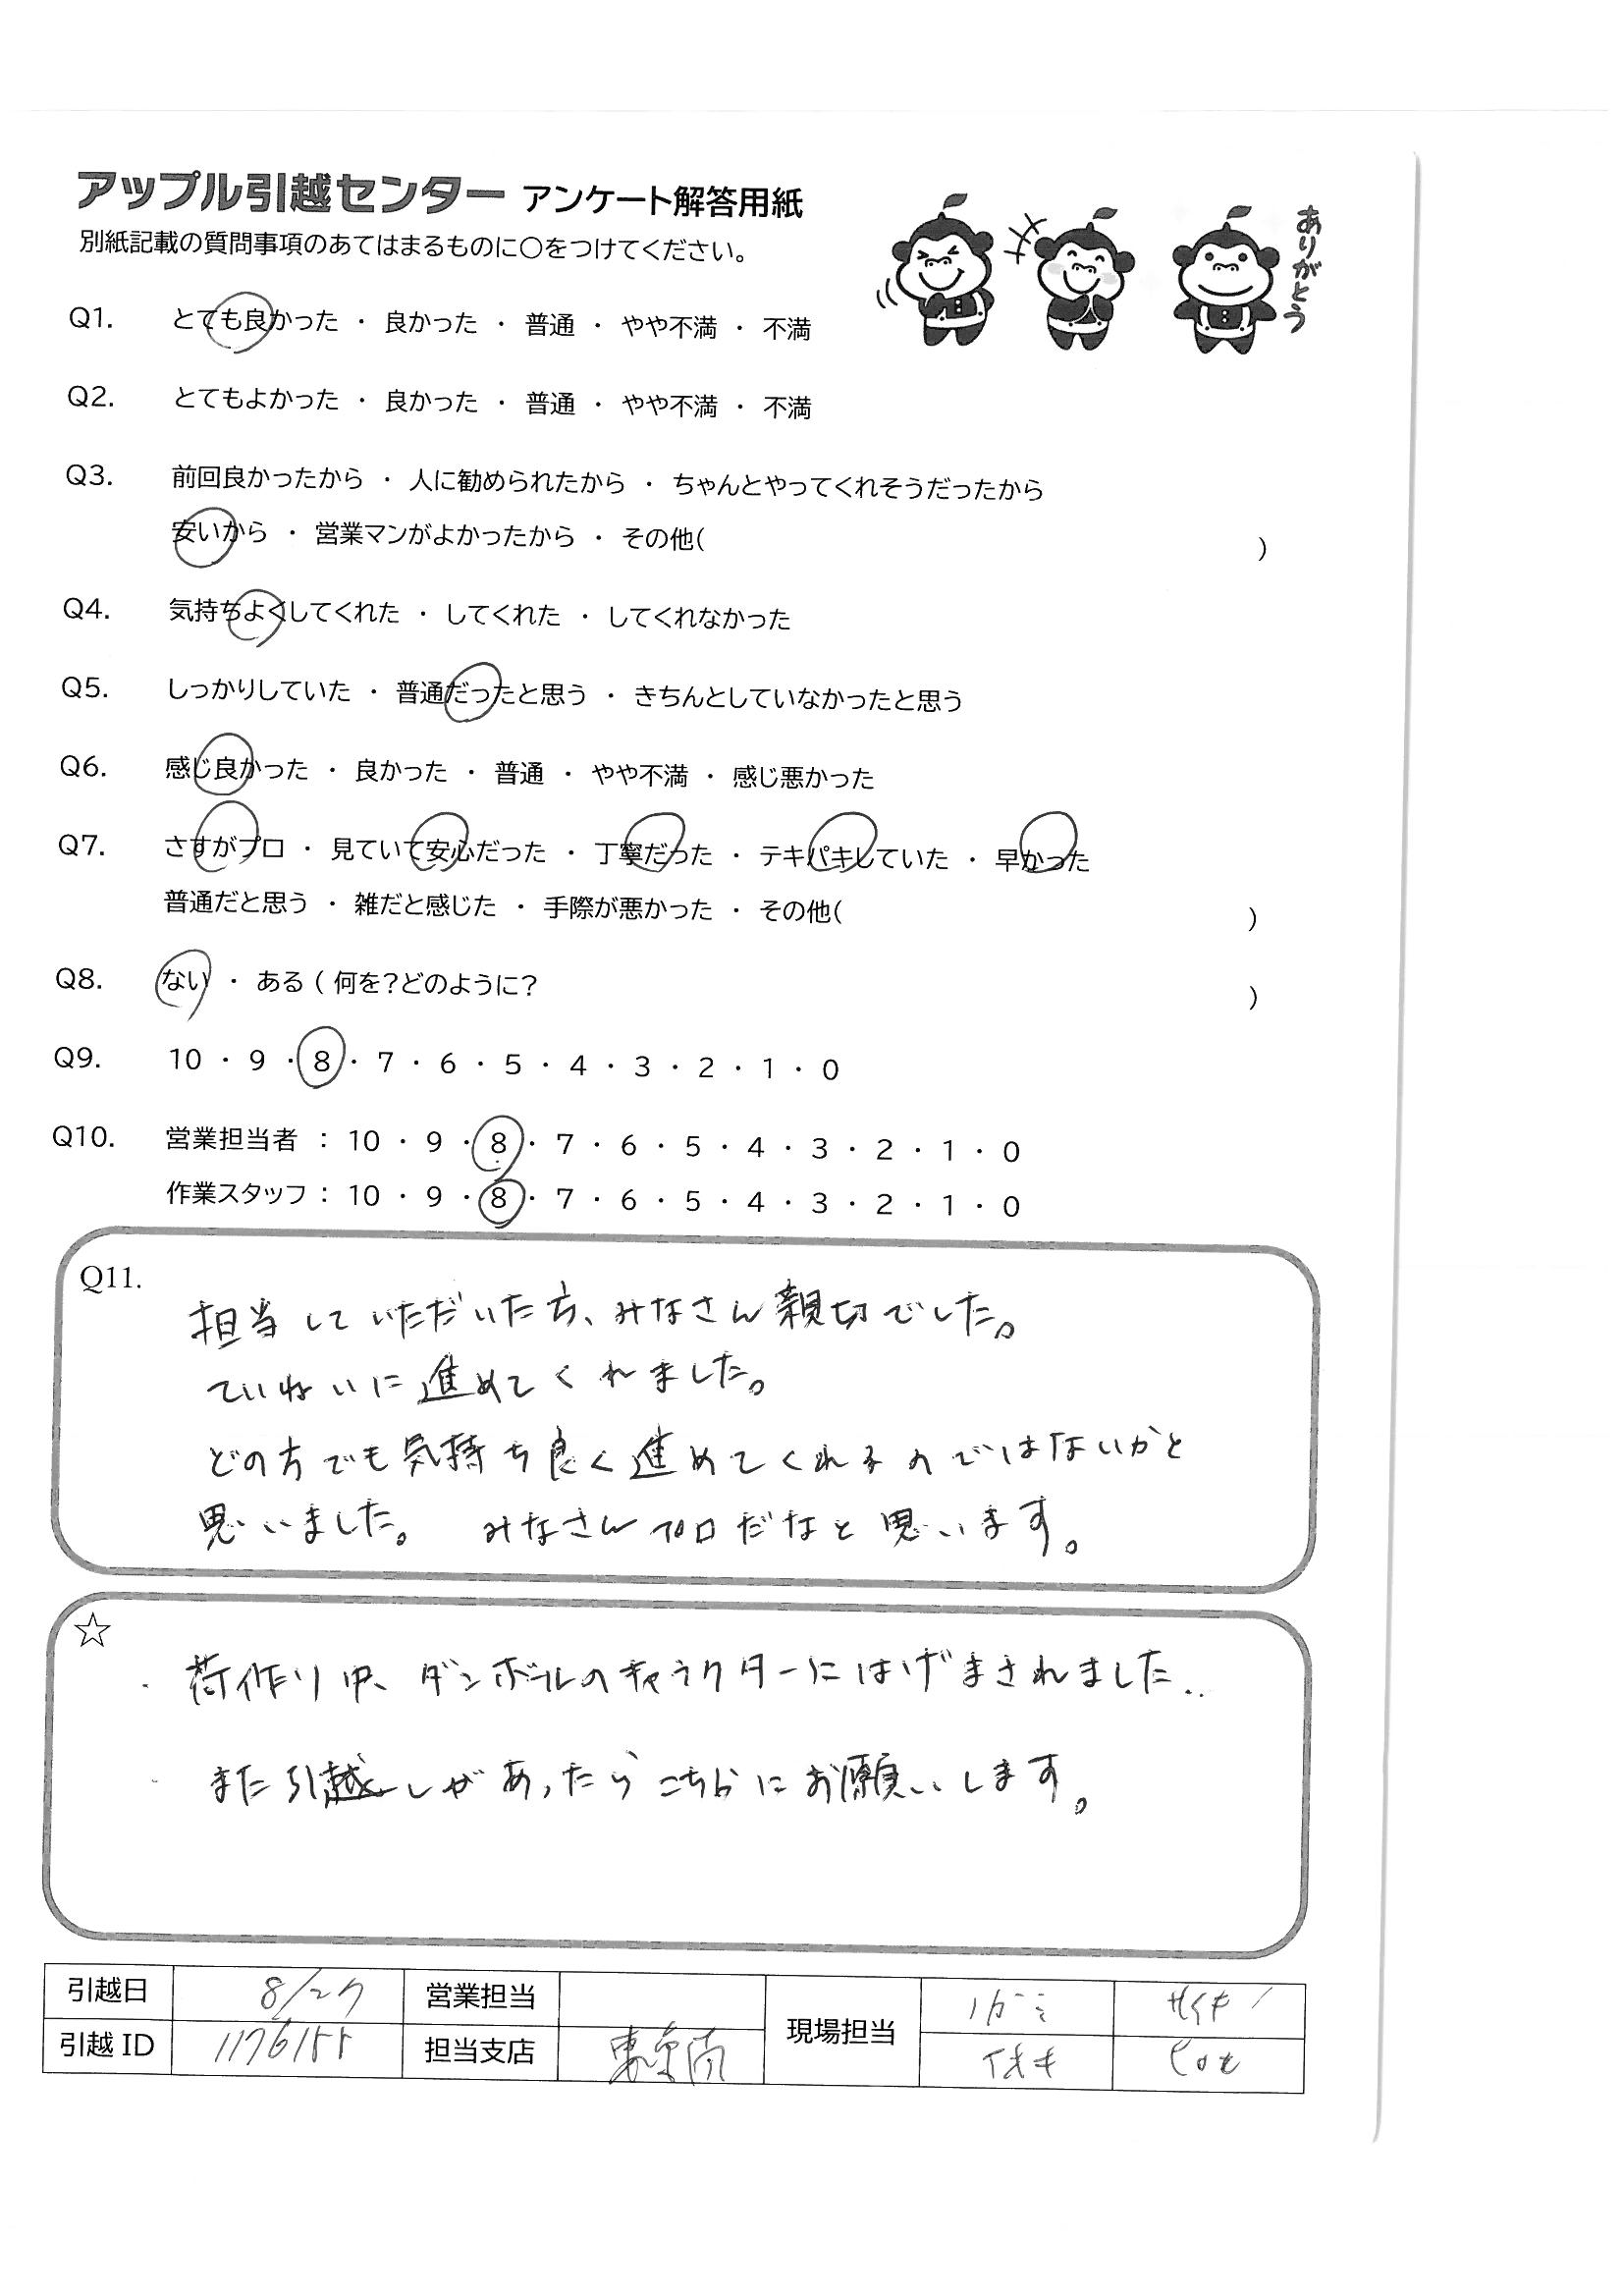 アップル引越センター アンケート解答用紙
別紙記載の質問事項のあてはまるものに〇をつけてください。
ありがとう
Q1. とても良かった ・ 良かった ・ 普通 ・ やや不満 ・ 不満
Q2. とてもよかった ・ 良かった ・ 普通 ・ やや不満 ・ 不満
Q3. 前回良かったから ・ 人に勧められたから ・ ちゃんとやってくれそうだったから
安いから ・ 営業マンがよかったから ・ その他( )
Q4. 気持ちよくしてくれた ・ してくれた ・ してくれなかった
Q5. しっかりしていた ・ 普通だったと思う ・ きちんとしていなかったと思う
Q6. 感じ良かった ・ 良かった ・ 普通 ・ やや不満 ・ 感じ悪かった
Q7. さすがプロ ・ 見ていて安心だった ・ 丁寧だった ・ テキパキしていた ・ 早かった
普通だと思う ・ 雑だと感じた ・ 手際が悪かった ・ その他( )
Q8. ない ・ ある ( 何を?どのように? )
Q9. 10 ・ 9 ・ 8 ・ 7 ・ 6 ・ 5 ・ 4 ・ 3 ・ 2 ・ 1 ・ 0
Q10. 営業担当者 : 10 ・ 9 ・ 8 ・ 7 ・ 6 ・ 5 ・ 4 ・ 3 ・ 2 ・ 1 ・ 0
作業スタッフ : 10 ・ 9 ・ 8 ・ 7 ・ 6 ・ 5 ・ 4 ・ 3 ・ 2 ・ 1 ・ 0
Q11.
担当していただいた方、みなさん親切でした。
ていねいに進めてくれました。
どの方でも気持ち良く進めてくれるのではないかと
思いました。 みなさんプロだなと思います。
☆
荷作り中、ダンボールのキャラクターにはげまされました..
また引越しがあったらこちらにお願いします。
引越日 8/27 営業担当
現場担当
引越 ID 1176155 担当支店 東京南